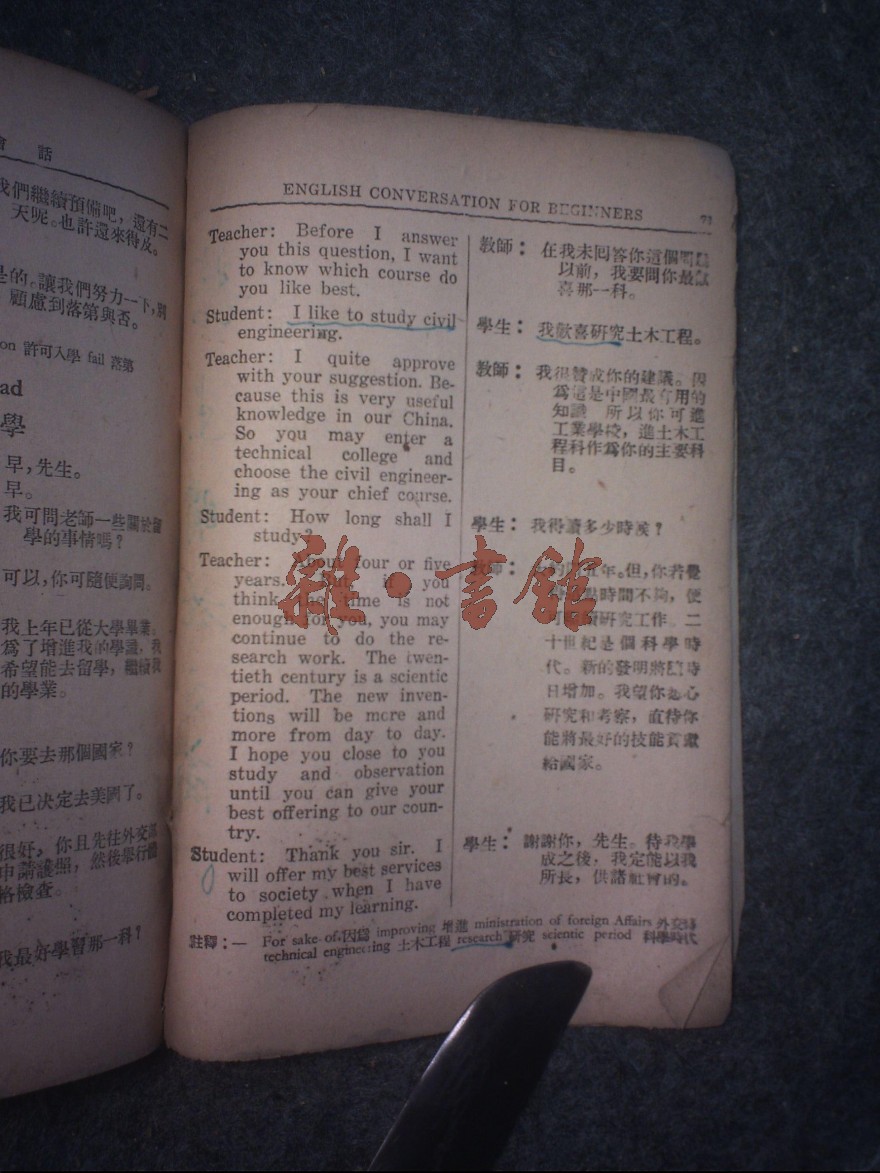 話
我們繼續預備吧，還有二
天呢。也許還來得及。
是的。讓我們努力一下，別
顧慮到落第與否。
on 許可入學 fail 落第
ad
學
早，先生。
早。
我可問老師一些關於留
學的事情嗎？
可以，你可隨便詢問。
我上年已從大學畢業。
爲了增進我的學識，我
希望能去留學，繼續我
的學業。
你要去那個國家？
我已決定去美國了。
很好，你且先往外交部
申請護照，然後舉行體
格檢查。
我最好學習那一科？
ENGLISH CONVERSATION FOR BEGINNERS
Teacher: Before I answer
you this question, I want
to know which course do
you like best.
Student: I like to study civil
engineering.
Teacher: I quite approve
with your suggestion. Be-
cause this is very useful
knowledge in our China.
So you may enter a
technical college and
choose the civil engineer-
ing as your chief course.
Student: How long shall I
study?
Teacher: About four or five
years. But, if you
think the time is not
enough for you, you may
continue to do the re-
search work. The twen-
tieth century is a scientic
period. The new inven-
tions will be more and
more from day to day.
I hope you close to you
study and observation
until you can give your
best offering to our coun-
try.
Student: Thank you sir. I
will offer my best services
to society when I have
completed my learning.
教師： 在我未回答你這個問題
以前，我要問你最
喜那一科。
學生： 我歡喜研究土木工程。
教師： 我很贊成你的建議。因
爲這是中國最有用的
知識 所以你可進
工業學校，進土木工
程科作爲你的主要科
目。
學生： 我得讀多少時候？
教師： 五年。但，你若覺
時間不夠，便
可 研究工作。二
十世紀是個科學時
代。新的發明將隨時
日增加。我望你 心
研究和考察，直待你
能將最好的技能貢獻
給國家。
學生： 謝謝你，先生。待我學
成之後，我定能以我
所長，供諸社會的。
註釋：— For sake of 因爲 improving 增進 ministration of foreign Affairs 外交部
technical engineering 土木工程 research 研究 scientic period 科學時代
雜·書館